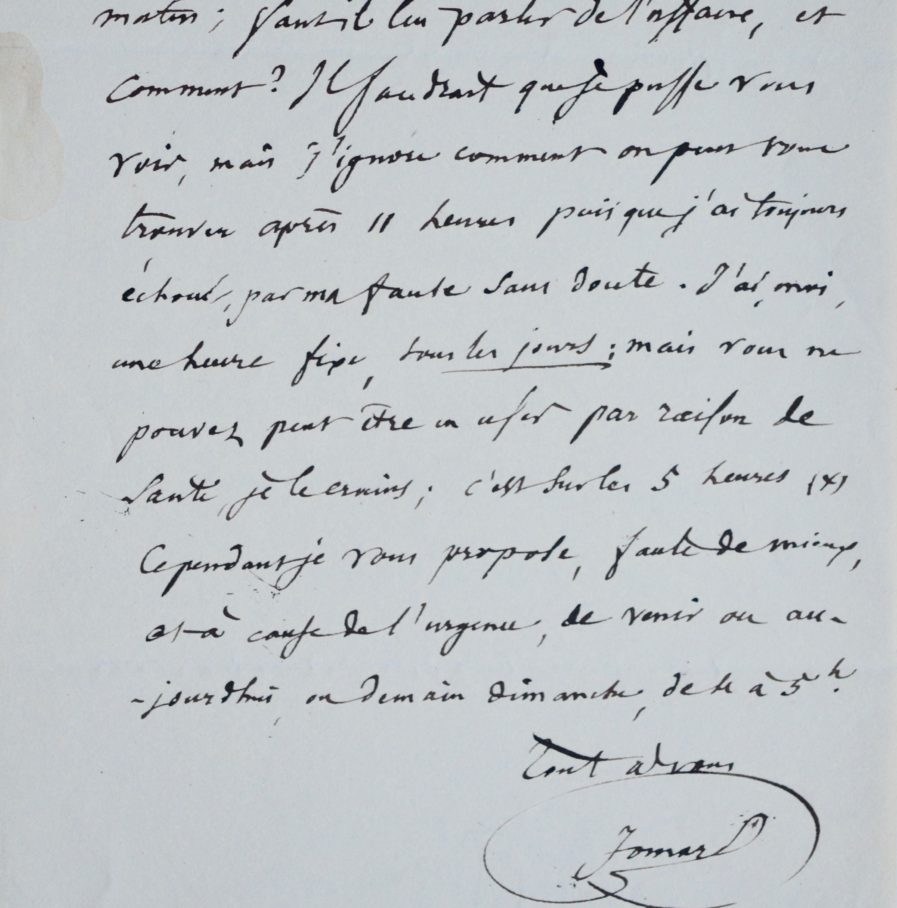 matin ; faut-il lui parler de l'affaire, et
comment ? Il faudrait que je pusse vous
voir, mais j'ignore comment on peut vous
trouver après 11 heures puisque j'ai toujours
échoué, par ma faute sans doute. J'ai, moi,
une heure fixe, tous les jours ; mais vous ne
pouvez peut être en user par raison de
santé, je le crains ; c'est sur les 5 heures (x)
Cependant je vous propose, faute de mieux,
et à cause de l'urgence, de venir ou au-
-jourdhui, ou demain dimanche, de 4 à 5h.
Tout à vous
Jomard